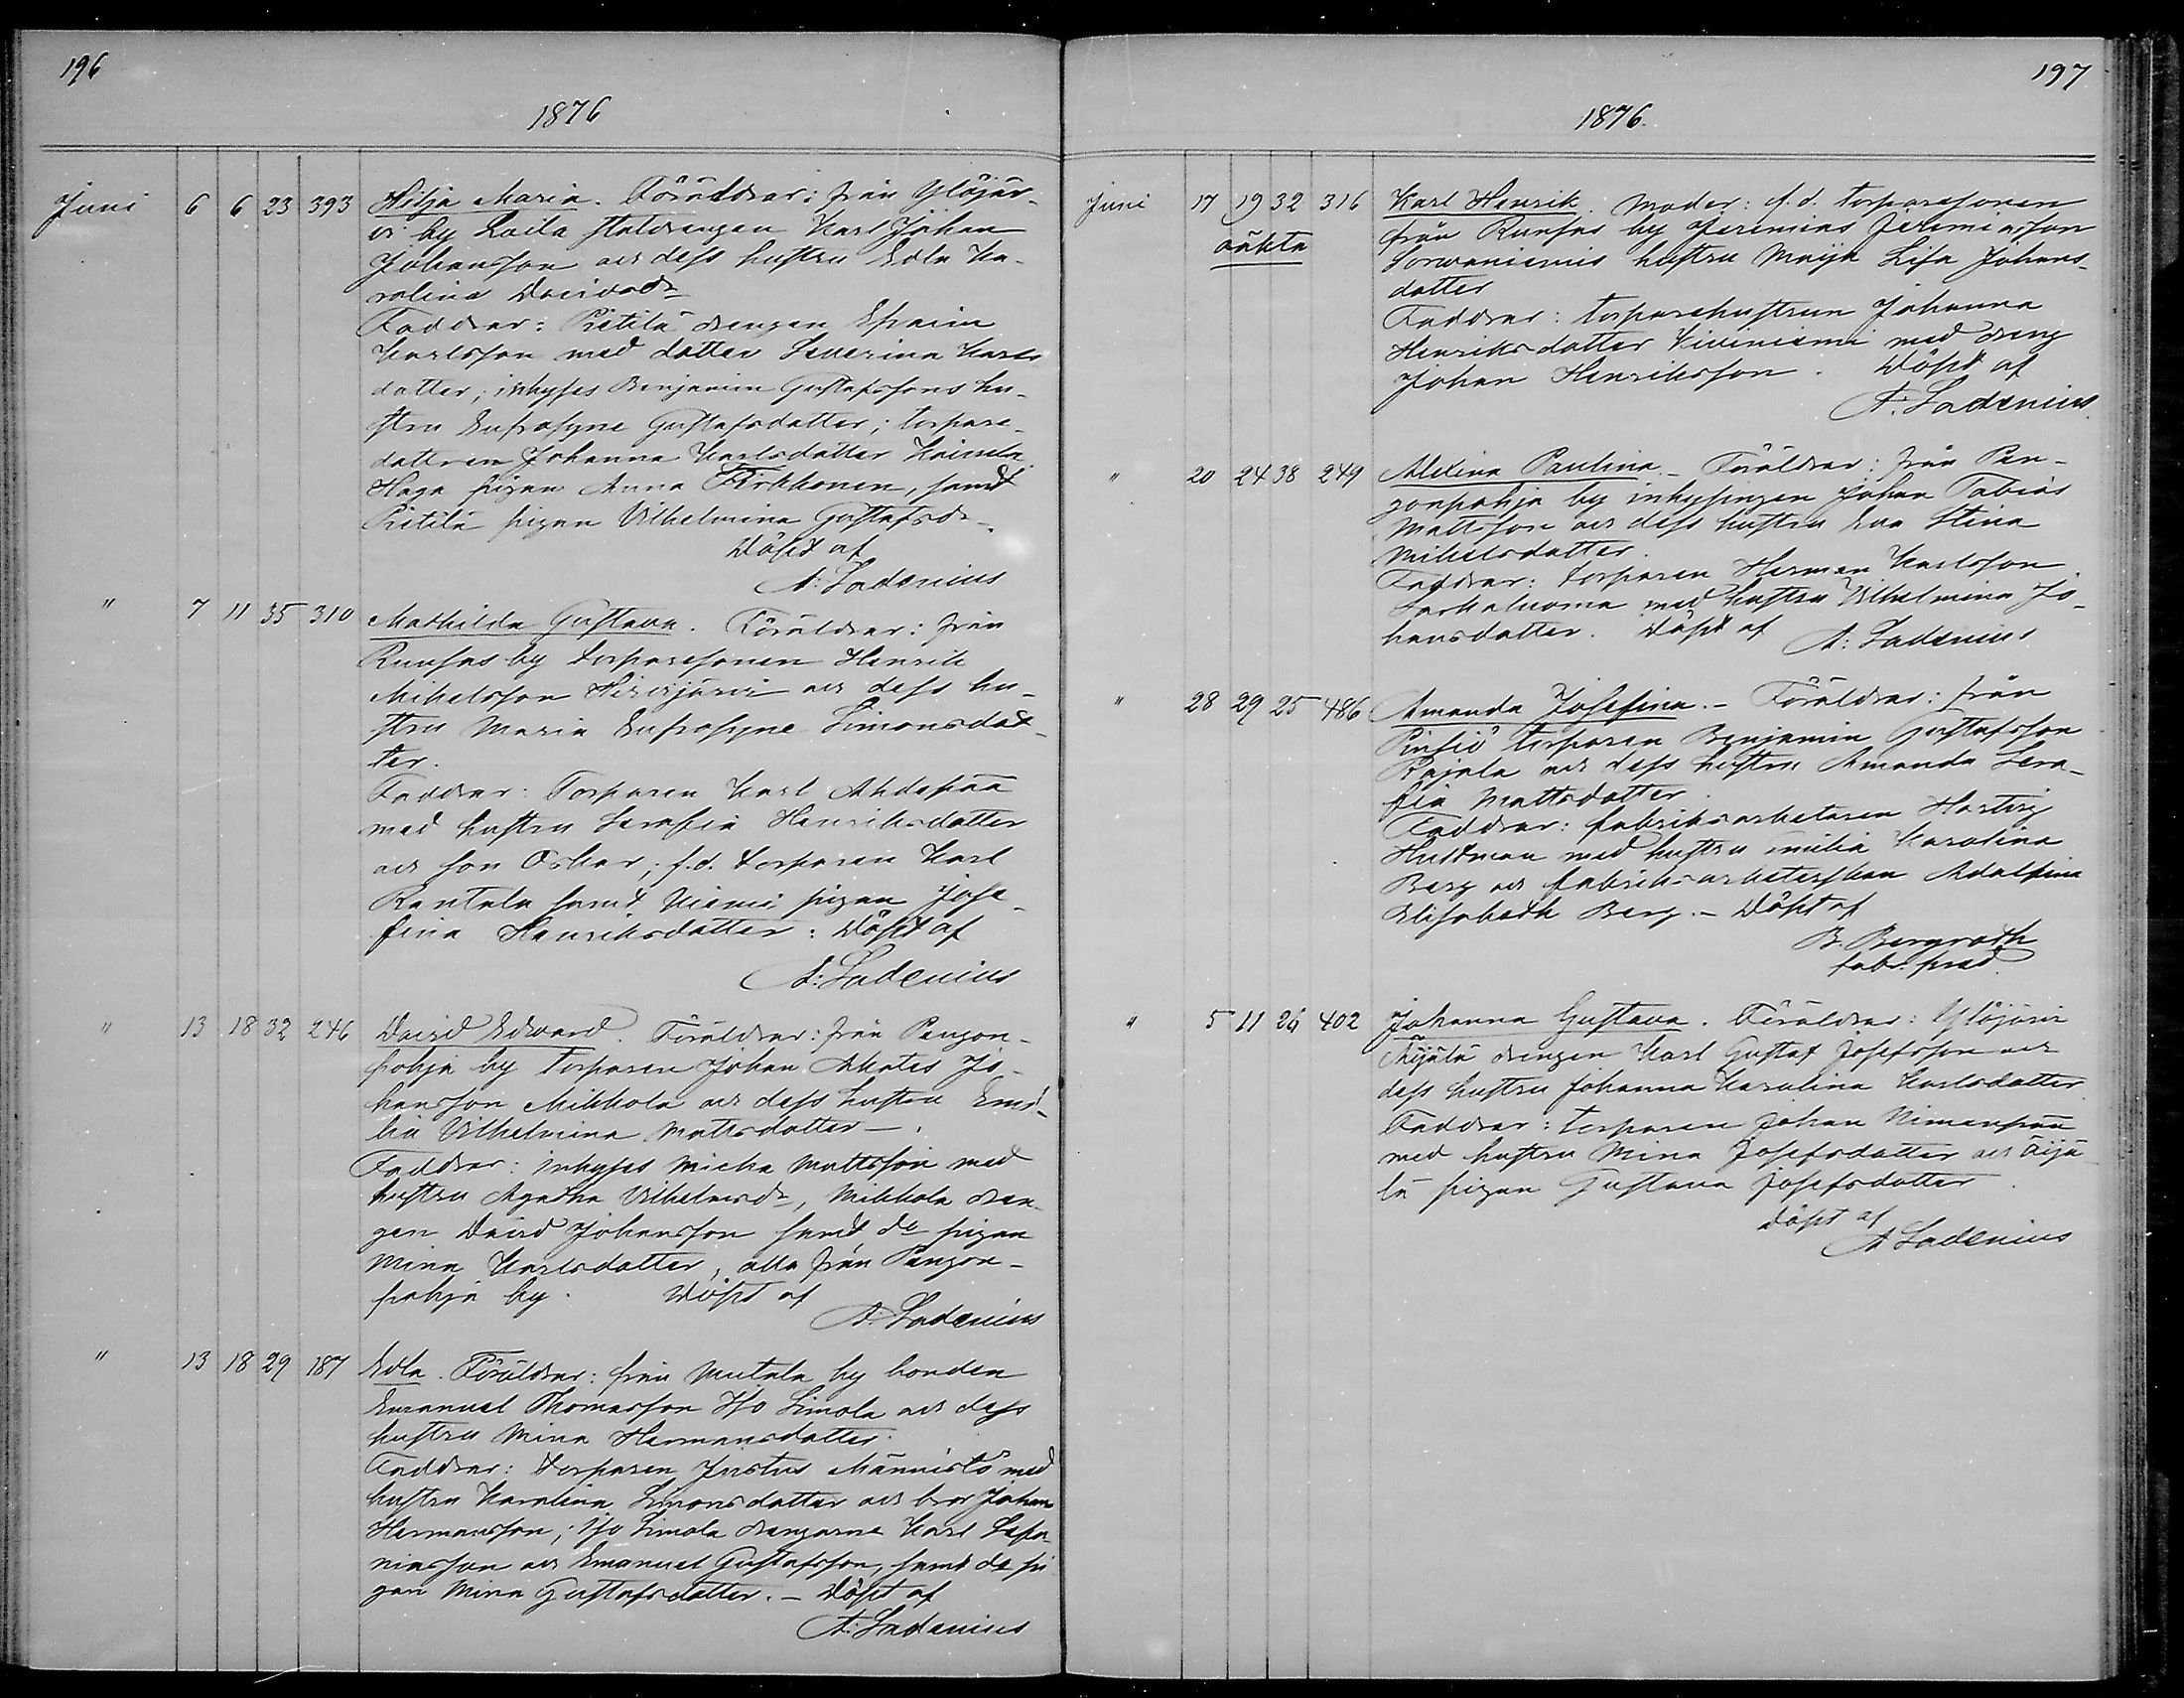 196
1876
Juni 6 6 23 393 Hilja Maria. Föräldrar: från Ylöjär-
vi by Laila statdrengen Karl Johan
Johansson och dess hustru Edla Ka-
rolina Davidsdr
Faddrar: Pietilä drengen Efraim
Karlsson med dotter Severina Karls
dotter; inhyses Benjamin Gustafssons hu-
stru Eufrosyne Gustafsdotter; torpare-
dottren Johanna Karlsdotter
Haga pigan Anna Pirkkonen, samt
Pietilä pigan Vilhelmina Gustafsdr.
Döpt af
A: Ladenius
" 7 11 35 310 Mathilda Gustava. Föräldrar: från
Runsas by torparesonen Henrik
Mikelsson Hirvijärvi och dess hu-
stru Maria Eufrosyne Simonsdot-
ter.
Faddrar: Torparen Karl Ahdepää
med hustru Serafia Henriksdotter
och son Oskar; f.d. torparen Karl
Rantala samt Niemi pigan Jose-
fina Henriksdotter: Döpt af
A: Ladenius
" 13 18 32 246 David Edward. Föräldrar: från Pengon-
pohja by torparen Johan Akates Jo-
hansson Mikkola och dess hustru Emi-
lia Vilhelmina Mattsdotter -.
Faddrar: inhyses Micka Mattsson med
hustru Agatha Vilhelmsdr, Mikkola dren-
gen David Johansson samt do pigan
Mina Karlsdotter, alla från Pengon-
pohja by. Döpt af
A: Ladenius
" 13 18 29 187 Edla. Föräldrar: från Mutala by bonden
Emanuel Thomasson Iso Simola och dess
hustru Mina Hermansdotter.
Faddrar: torparen Justus Männistö med
hustru Karolina Simonsdotter och bror Johan
Hermansson; Iso Simola drengarne Karl Sefa-
niasson och Emanuel Gustafsson, samt do pi
gan Mina Gustafsdotter. - Döpt af
A: Ladenius
197
1876.
Juni 17 19 32 316 Karl Henrik. Moder: f.d. torparesonen
oäkta
från Runsas by Jeremias Jeremiasson
Sorvaniemis hustru Maija Lisa Johans-
dotter
Faddrar: torparehustrun Johanna
Henriksdotter Viiniemi med dreng
Johan Henriksson. Döpt af
A: Ladenius.
" 20 24 38 249 Alexina Paulina. - Föräldrar: från Pen-
gonpohja by inhysingen Johan Tobias
Mattsson och dess hustru Eva Stina
Mikelsdotter.
Faddrar: torparen Herman Karlsson
Sarkaluoma med hustru Vilhelmina Jo-
hansdotter. Döpt af A: Ladenius
" 28 29 25 486 Amanda Josefina. - Föräldrar: från
Pinsiö torparen Benjamin Gustafsson
Rajala och dess hustru Amanda Sera-
fia Mattsdotter.
Faddrar: fabriksarbetaren Hartvig
Hultman med hustru Emilia Karolina
Berg och fabriksarbeterskan Adolfina
Elisabeth Berg. - Döpt af
B. Bergroth
fabr. pred.
" 5 11 26 402 Johanna Gustava. Föräldrar: Ylöjärvi
Äijälä drengen Karl Gustaf Josefsson och
dess hustru Johanna Karolina Karlsdotter
Faddrar: torparen Johan Nimenpää
med hustru Mina Josefsdotter och Äijä
lä pigan Gustava Josefsdotter.
Döpt af
A Ladenius